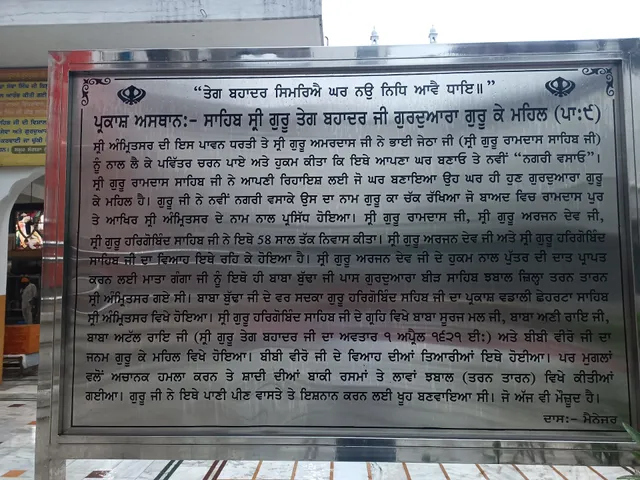 “ਤੇਗ ਬਹਾਦਰ ਸਿਮਰਿਐ ਘਰ ਨਉ ਨਿਧਿ ਆਵੈ ਧਾਇ॥”
ਪ੍ਰਕਾਸ਼ ਅਸਥਾਨ:- ਸਾਹਿਬ ਸ੍ਰੀ ਗੁਰੂ ਤੇਗ ਬਹਾਦਰ ਜੀ ਗੁਰਦੁਆਰਾ ਗੁਰੂ ਕੇ ਮਹਿਲ (ਪਾ:੯)
ਸ੍ਰੀ ਅੰਮ੍ਰਿਤਸਰ ਦੀ ਇਸ ਪਾਵਨ ਧਰਤੀ ਤੇ ਸ੍ਰੀ ਗੁਰੂ ਅਮਰਦਾਸ ਜੀ ਨੇ ਭਾਈ ਜੇਠਾ ਜੀ (ਸ੍ਰੀ ਗੁਰੂ ਰਾਮਦਾਸ ਸਾਹਿਬ ਜੀ)
ਨੂੰ ਨਾਲ ਲੈ ਕੇ ਪਵਿੱਤਰ ਚਰਨ ਪਾਏ ਅਤੇ ਹੁਕਮ ਕੀਤਾ ਕਿ ਇਥੇ ਆਪਣਾ ਘਰ ਬਣਾਓ ਤੇ ਨਵੀਂ “ਨਗਰੀ ਵਸਾਓ”।
ਸ੍ਰੀ ਗੁਰੂ ਰਾਮਦਾਸ ਸਾਹਿਬ ਜੀ ਨੇ ਆਪਣੀ ਰਿਹਾਇਸ਼ ਲਈ ਜੋ ਘਰ ਬਣਾਇਆ ਉਹ ਘਰ ਹੀ ਹੁਣ ਗੁਰਦੁਆਰਾ ਗੁਰੂ
ਕੇ ਮਹਿਲ ਹੈ। ਗੁਰੂ ਜੀ ਨੇ ਨਵੀਂ ਨਗਰੀ ਵਸਾਕੇ ਉਸ ਦਾ ਨਾਮ ਗੁਰੂ ਕਾ ਚੱਕ ਰੱਖਿਆ ਜੋ ਬਾਅਦ ਵਿਚ ਰਾਮਦਾਸ ਪੁਰ
ਤੇ ਆਖਿਰ ਸ੍ਰੀ ਅੰਮ੍ਰਿਤਸਰ ਦੇ ਨਾਮ ਨਾਲ ਪ੍ਰਸਿੱਧ ਹੋਇਆ। ਸ੍ਰੀ ਗੁਰੂ ਰਾਮਦਾਸ ਜੀ, ਸ੍ਰੀ ਗੁਰੂ ਅਰਜਨ ਦੇਵ ਜੀ,
ਸ੍ਰੀ ਗੁਰੂ ਹਰਿਗੋਬਿੰਦ ਸਾਹਿਬ ਜੀ ਨੇ ਇਥੇ 58 ਸਾਲ ਤੱਕ ਨਿਵਾਸ ਕੀਤਾ। ਸ੍ਰੀ ਗੁਰੂ ਅਰਜਨ ਦੇਵ ਜੀ ਅਤੇ ਸ੍ਰੀ ਗੁਰੂ ਹਰਿਗੋਬਿੰਦ
ਸਾਹਿਬ ਜੀ ਦਾ ਵਿਆਹ ਇਥੇ ਰਹਿ ਕੇ ਹੋਇਆ ਹੈ। ਸ੍ਰੀ ਗੁਰੂ ਅਰਜਨ ਦੇਵ ਜੀ ਦੇ ਹੁਕਮ ਨਾਲ ਪੁੱਤਰ ਦੀ ਦਾਤ ਪ੍ਰਾਪਤ
ਕਰਨ ਲਈ ਮਾਤਾ ਗੰਗਾ ਜੀ ਨੂੰ ਇਥੇ ਹੀ ਬਾਬਾ ਬੁੱਢਾ ਜੀ ਪਾਸ ਗੁਰਦੁਆਰਾ ਬੀੜ ਸਾਹਿਬ ਝਬਾਲ ਜ਼ਿਲ੍ਹਾ ਤਰਨ ਤਾਰਨ
ਸ੍ਰੀ ਅੰਮ੍ਰਿਤਸਰ ਗਏ ਸੀ। ਬਾਬਾ ਬੁੱਢਾ ਜੀ ਦੇ ਵਰ ਸਦਕਾ ਗੁਰੂ ਹਰਿਗੋਬਿੰਦ ਸਹਿਬ ਜੀ ਦਾ ਪ੍ਰਕਾਸ਼ ਵਡਾਲੀ ਛੇਹਰਟਾ ਸਾਹਿਬ
ਸ੍ਰੀ ਅੰਮ੍ਰਿਤਸਰ ਵਿਖੇ ਹੋਇਆ। ਸ੍ਰੀ ਗੁਰੂ ਹਰਿਗੋਬਿੰਦ ਸਾਹਿਬ ਜੀ ਦੇ ਗ੍ਰਹਿ ਵਿਖੇ ਬਾਬਾ ਸੂਰਜ ਮਲ ਜੀ, ਬਾਬਾ ਅਣੀ ਰਾਇ ਜੀ,
ਬਾਬਾ ਅਟੱਲ ਰਾਇ ਜੀ (ਸ੍ਰੀ ਗੁਰੂ ਤੇਗ ਬਹਾਦਰ ਜੀ ਦਾ ਅਵਤਾਰ ੧ ਅਪ੍ਰੈਲ ੧੬੨੧ ਈ:) ਅਤੇ ਬੀਬੀ ਵੀਰੋ ਜੀ ਦਾ
ਜਨਮ ਗੁਰੂ ਕੇ ਮਹਿਲ ਵਿਖੇ ਹੋਇਆ। ਬੀਬੀ ਵੀਰੋ ਜੀ ਦੇ ਵਿਆਹ ਦੀਆਂ ਤਿਆਰੀਆਂ ਇਥੇ ਹੋਈਆ। ਪਰ ਮੁਗਲਾਂ
ਵਲੋਂ ਅਚਾਨਕ ਹਮਲਾ ਕਰਨ ਤੇ ਸ਼ਾਦੀ ਦੀਆਂ ਬਾਕੀ ਰਸਮਾਂ ਤੇ ਲਾਵਾਂ ਝਬਾਲ (ਤਰਨ ਤਾਰਨ) ਵਿਖੇ ਕੀਤੀਆਂ
ਗਈਆ। ਗੁਰੂ ਜੀ ਨੇ ਇਥੇ ਪਾਣੀ ਪੀਣ ਵਾਸਤੇ ਤੇ ਇਸ਼ਨਾਨ ਕਰਨ ਲਈ ਖੂਹ ਬਣਵਾਇਆ ਸੀ। ਜੋ ਅੱਜ ਵੀ ਮੌਜੂਦ ਹੈ।
ਦਾਸ:- ਮੈਨੇਜਰ